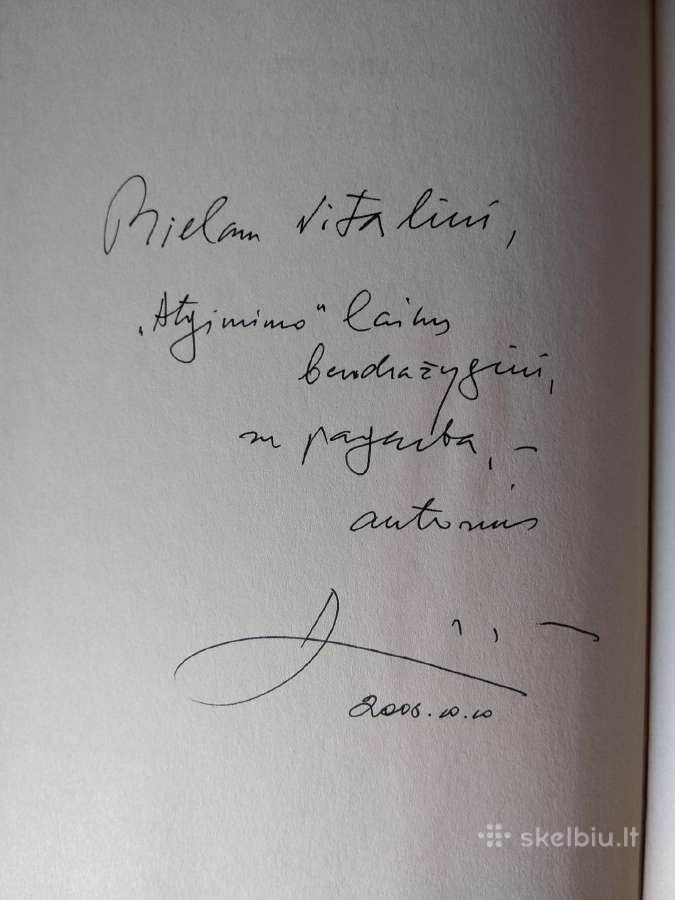 Mielam Vitaliui,
„Atgimimo“ laikų
bendražygiui,
su pagarba, –
autorius
2006.10.10
skelbiu.lt